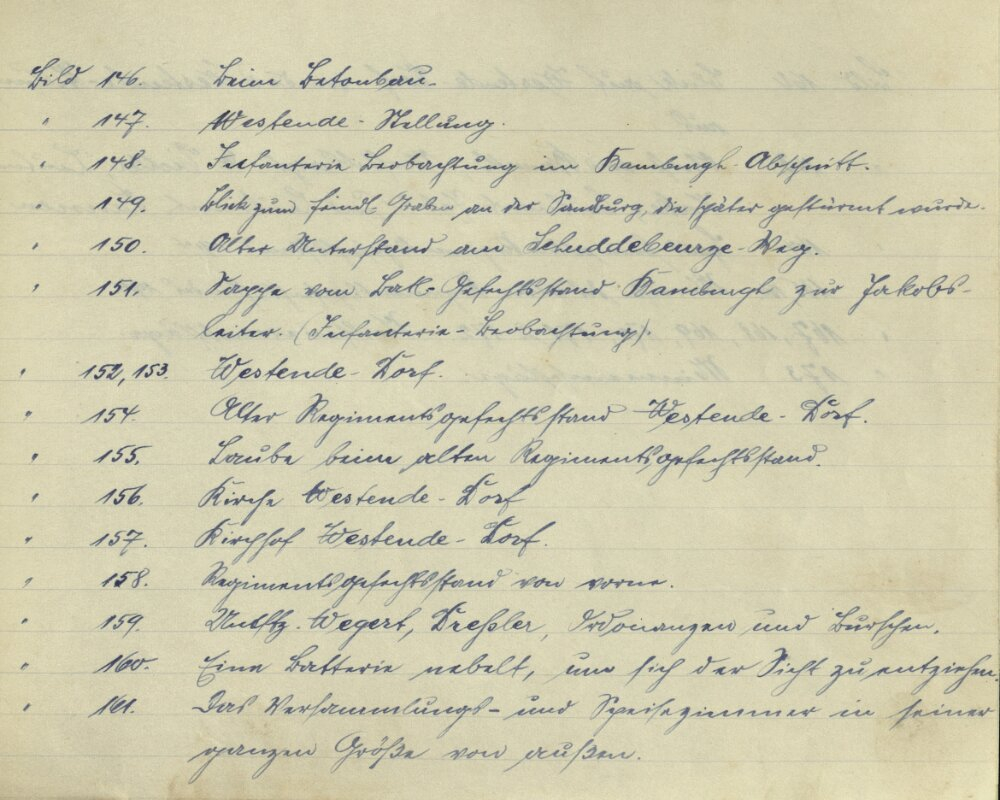 Bild 146. Beim Betonbau.
" 147. Westende-Stellung.
" 148. Infanterie Beobachtung im Bamburgh-Abschnitt.
" 149. Blick zum feindl. Graben an der Sandburg, die später gestürmt wurde.
" 150. Alter Unterstand am Schuddebeurze-Weg.
" 151. Sappe vom Bak-Gefechtsstand Bamburgh zur Jakobs-
leiter. (Infanterie-Beobachtung).
" 152, 153. Westende-Dorf.
" 154. Alter Regimentsgefechtsstand Westende-Dorf.
" 155. Laube beim alten Regimentsgefechtsstand.
" 156. Kirche Westende-Dorf
" 157. Kirchhof Westende-Dorf.
" 158. Regimentsgefechtsstand von vorne.
" 159. Untffz. Wegert, Dreßler, Ordonanzen und Burschen.
" 160. Eine Batterie nebelt, um sich der Sicht zu entziehen.
" 161. Das Versammlungs- und Speisezimmer in seiner
ganzen Größe von außen.